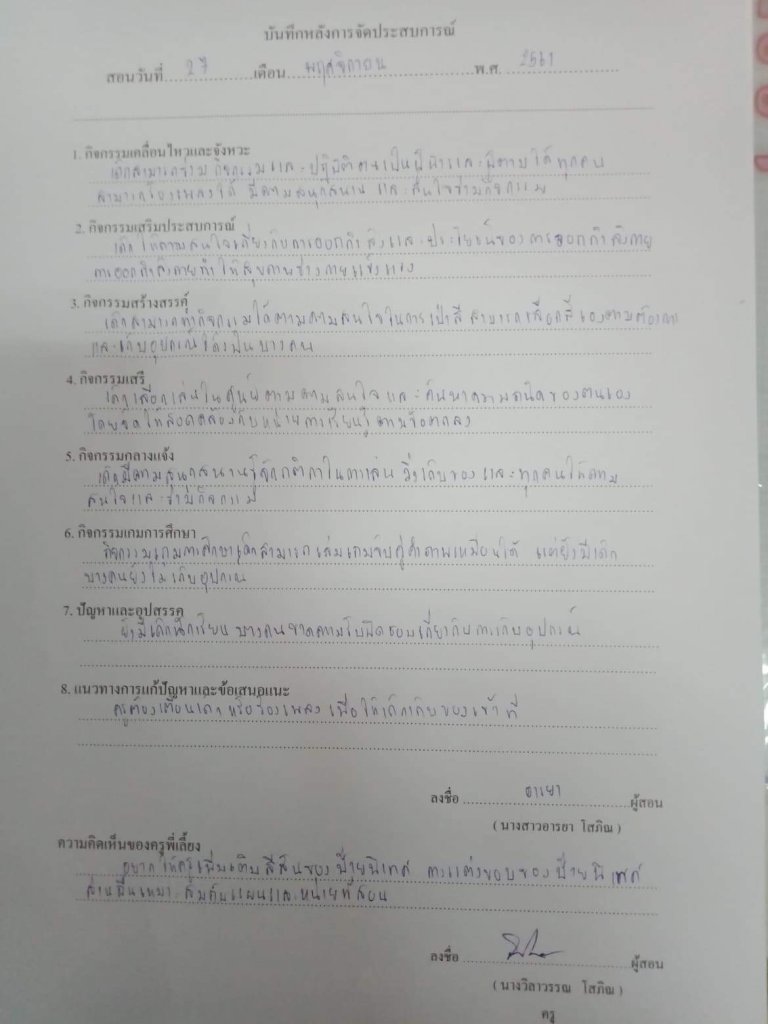 บันทึกหลังการจัดประสบการณ์
สอนวันที่ 27 เดือน พฤศจิกายน พ.ศ. 2561
1. กิจกรรมเคลื่อนไหวและจังหวะ
เด็กสามารถร่วมกิจกรรมและปฏิบัติตนเป็นผู้นำและผู้ตามได้ทุกคน
สามารถร้องเพลงได้ มีความสนุกสนาน และสนใจร่วมกิจกรรม
2. กิจกรรมเสริมประสบการณ์
เด็กให้ความสนใจเกี่ยวกับการออกกำลังและประโยชน์ของการออกกำลังกาย
การออกกำลังกายทำให้สุขภาพร่างกายแข็งแรง
3. กิจกรรมสร้างสรรค์
เด็กสามารถทำกิจกรรมได้ตามความสนใจในการเป่าสี สามารถเลือกสีเองตามต้องการ
และเก็บอุปกรณ์ได้เป็นบางคน
4. กิจกรรมเสรี
เด็กเลือกเล่นในศูนย์ตามความสนใจ และค้นหาความถนัดของตนเอง
โดยจัดให้สอดคล้องกับหน่วยการเรียนรู้ตามข้อตกลง
5. กิจกรรมกลางแจ้ง
เด็กมีความสนุกสนานรู้จักกติกาในการเล่น วิ่งเก็บของ และทุกคนให้ความ
สนใจและร่วมกิจกรรม
6. กิจกรรมเกมการศึกษา
กิจกรรมเกมการศึกษาเด็กสามารถเล่นเกมจับคู่ภาพเหมือนได้ แต่ยังมีเด็ก
บางคนยังไม่เก็บอุปกรณ์
7. ปัญหาและอุปสรรค
ยังมีเด็กนักเรียนบางคนขาดความรับผิดชอบเกี่ยวกับการเก็บอุปกรณ์
8. แนวทางการแก้ปัญหาและข้อเสนอแนะ
ครูต้องเตือนเด็กหรือร้องเพลงเพื่อให้เด็กเก็บของเข้าที่
ลงชื่อ อารยา ผู้สอน
( นางสาวอารยา โสภิณ )
ความคิดเห็นของครูพี่เลี้ยง
อยากให้ครูเพิ่มเติมสีสันของป้ายนิเทศ ตกแต่งขอบของป้ายนิเทศ
ส่วนอื่นเหมาะสมกับแผนและหน่วยที่สอน
ลงชื่อ ผู้สอน
( นางวิลาวรรณ โสภิณ )
ครู